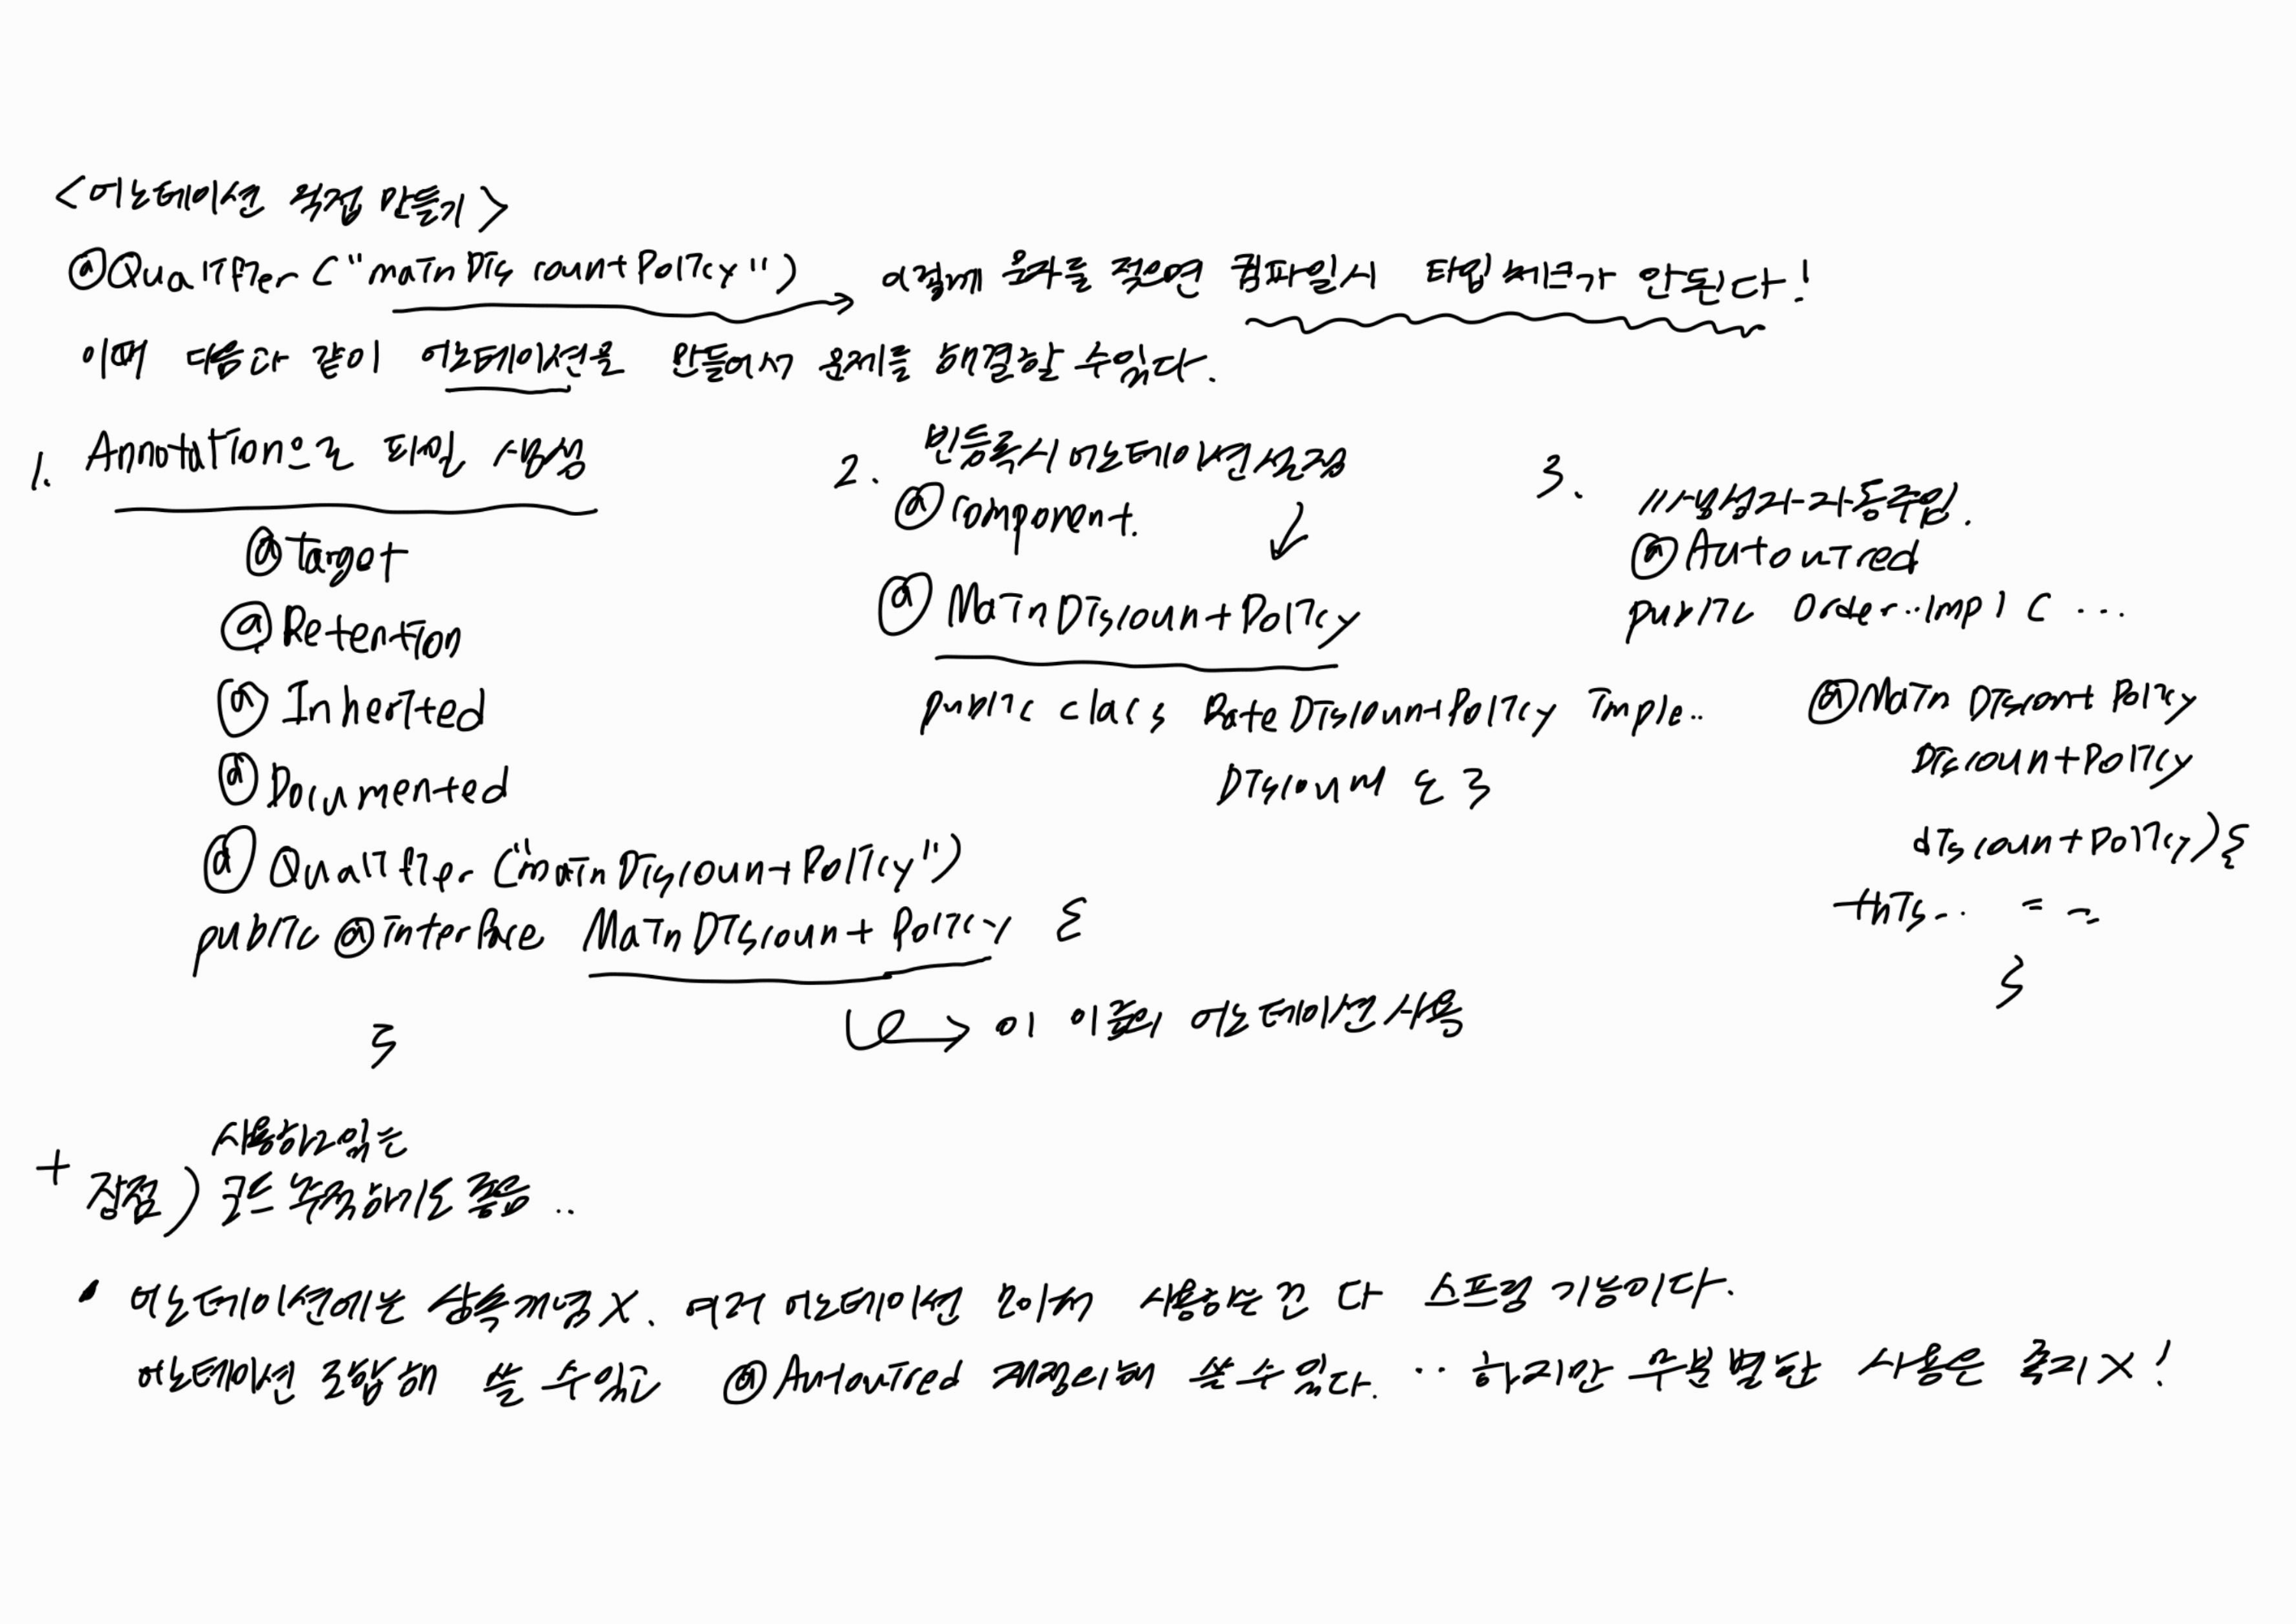 <어노테이션 직접 만들기>
@Qualifier ("mainDiscountPolicy") → 이렇게 문자를 적으면 컴파일시 타입 체크가 안된다!
이때 다음과 같이 어노테이션을 만들어서 문제를 해결할 수있다.
1. Annotation으로 파일 생성
@Target
@Retention
@Inherited
@Documented
@Qualifier ("mainDiscountPolicy")
public @interface MainDiscountPolicy {
}
↳ 이 이름의 어노테이션 사용
2. 빈등록시 어노테이션설정
@Component.
@MainDiscountPolicy
public class RateDiscountPolicy imple..
Discount { }
3. //생성자자동주입.
@Autowired
public Order..impl ( ...
@MainDiscountPolicy
DiscountPolicy
discountPolicy){
this.. = ..
}
+ 장점) 사용하고있는
코드 추적하기도 좋음 ..
• 어노테이션에는 상속개념X. 여러 어노테이션 모아서 사용하는건 다 스프링 기능이다.
어노테이션 조합해 쓸 수있고 @Autowired 재정의해 쓸수있다. .. 하지만 무분별한 사용은 좋지X!